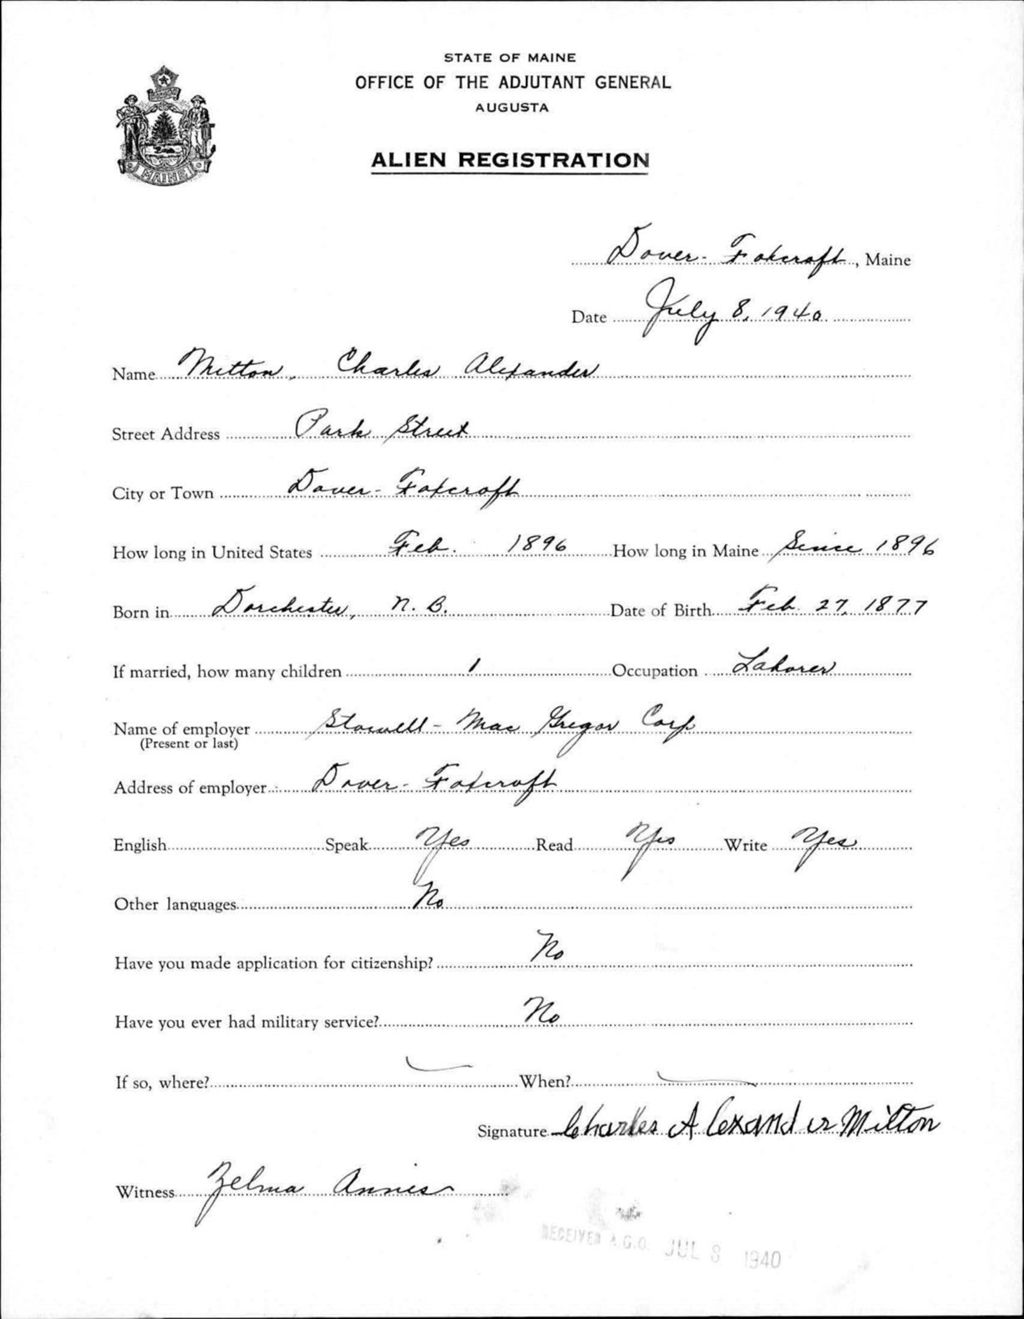 STATE OF MAINE
OFFICE OF THE ADJUTANT GENERAL
AUGUSTA
ALIEN REGISTRATION
MAINE
Dover-Foxcroft, Maine
Date July 8, 1940
Name Mitton, Charles Alexander
Street Address Park Street
City or Town Dover-Foxcroft
How long in United States Feb. 1896 How long in Maine Since 1896
Born in Dorchester, N. B. Date of Birth Feb. 27, 1877
If married, how many children 1 Occupation Laborer
Name of employer Stowell-MacGregor Corp
(Present or last)
Address of employer Dover-Foxcroft
English Speak Yes Read Yes Write Yes
Other languages No
Have you made application for citizenship? No
Have you ever had military service? No
If so, where? When?
Signature Charles Alexander Mitton
Witness Zelma Annis
RECEIVED A.G.O. JUL 8 1940